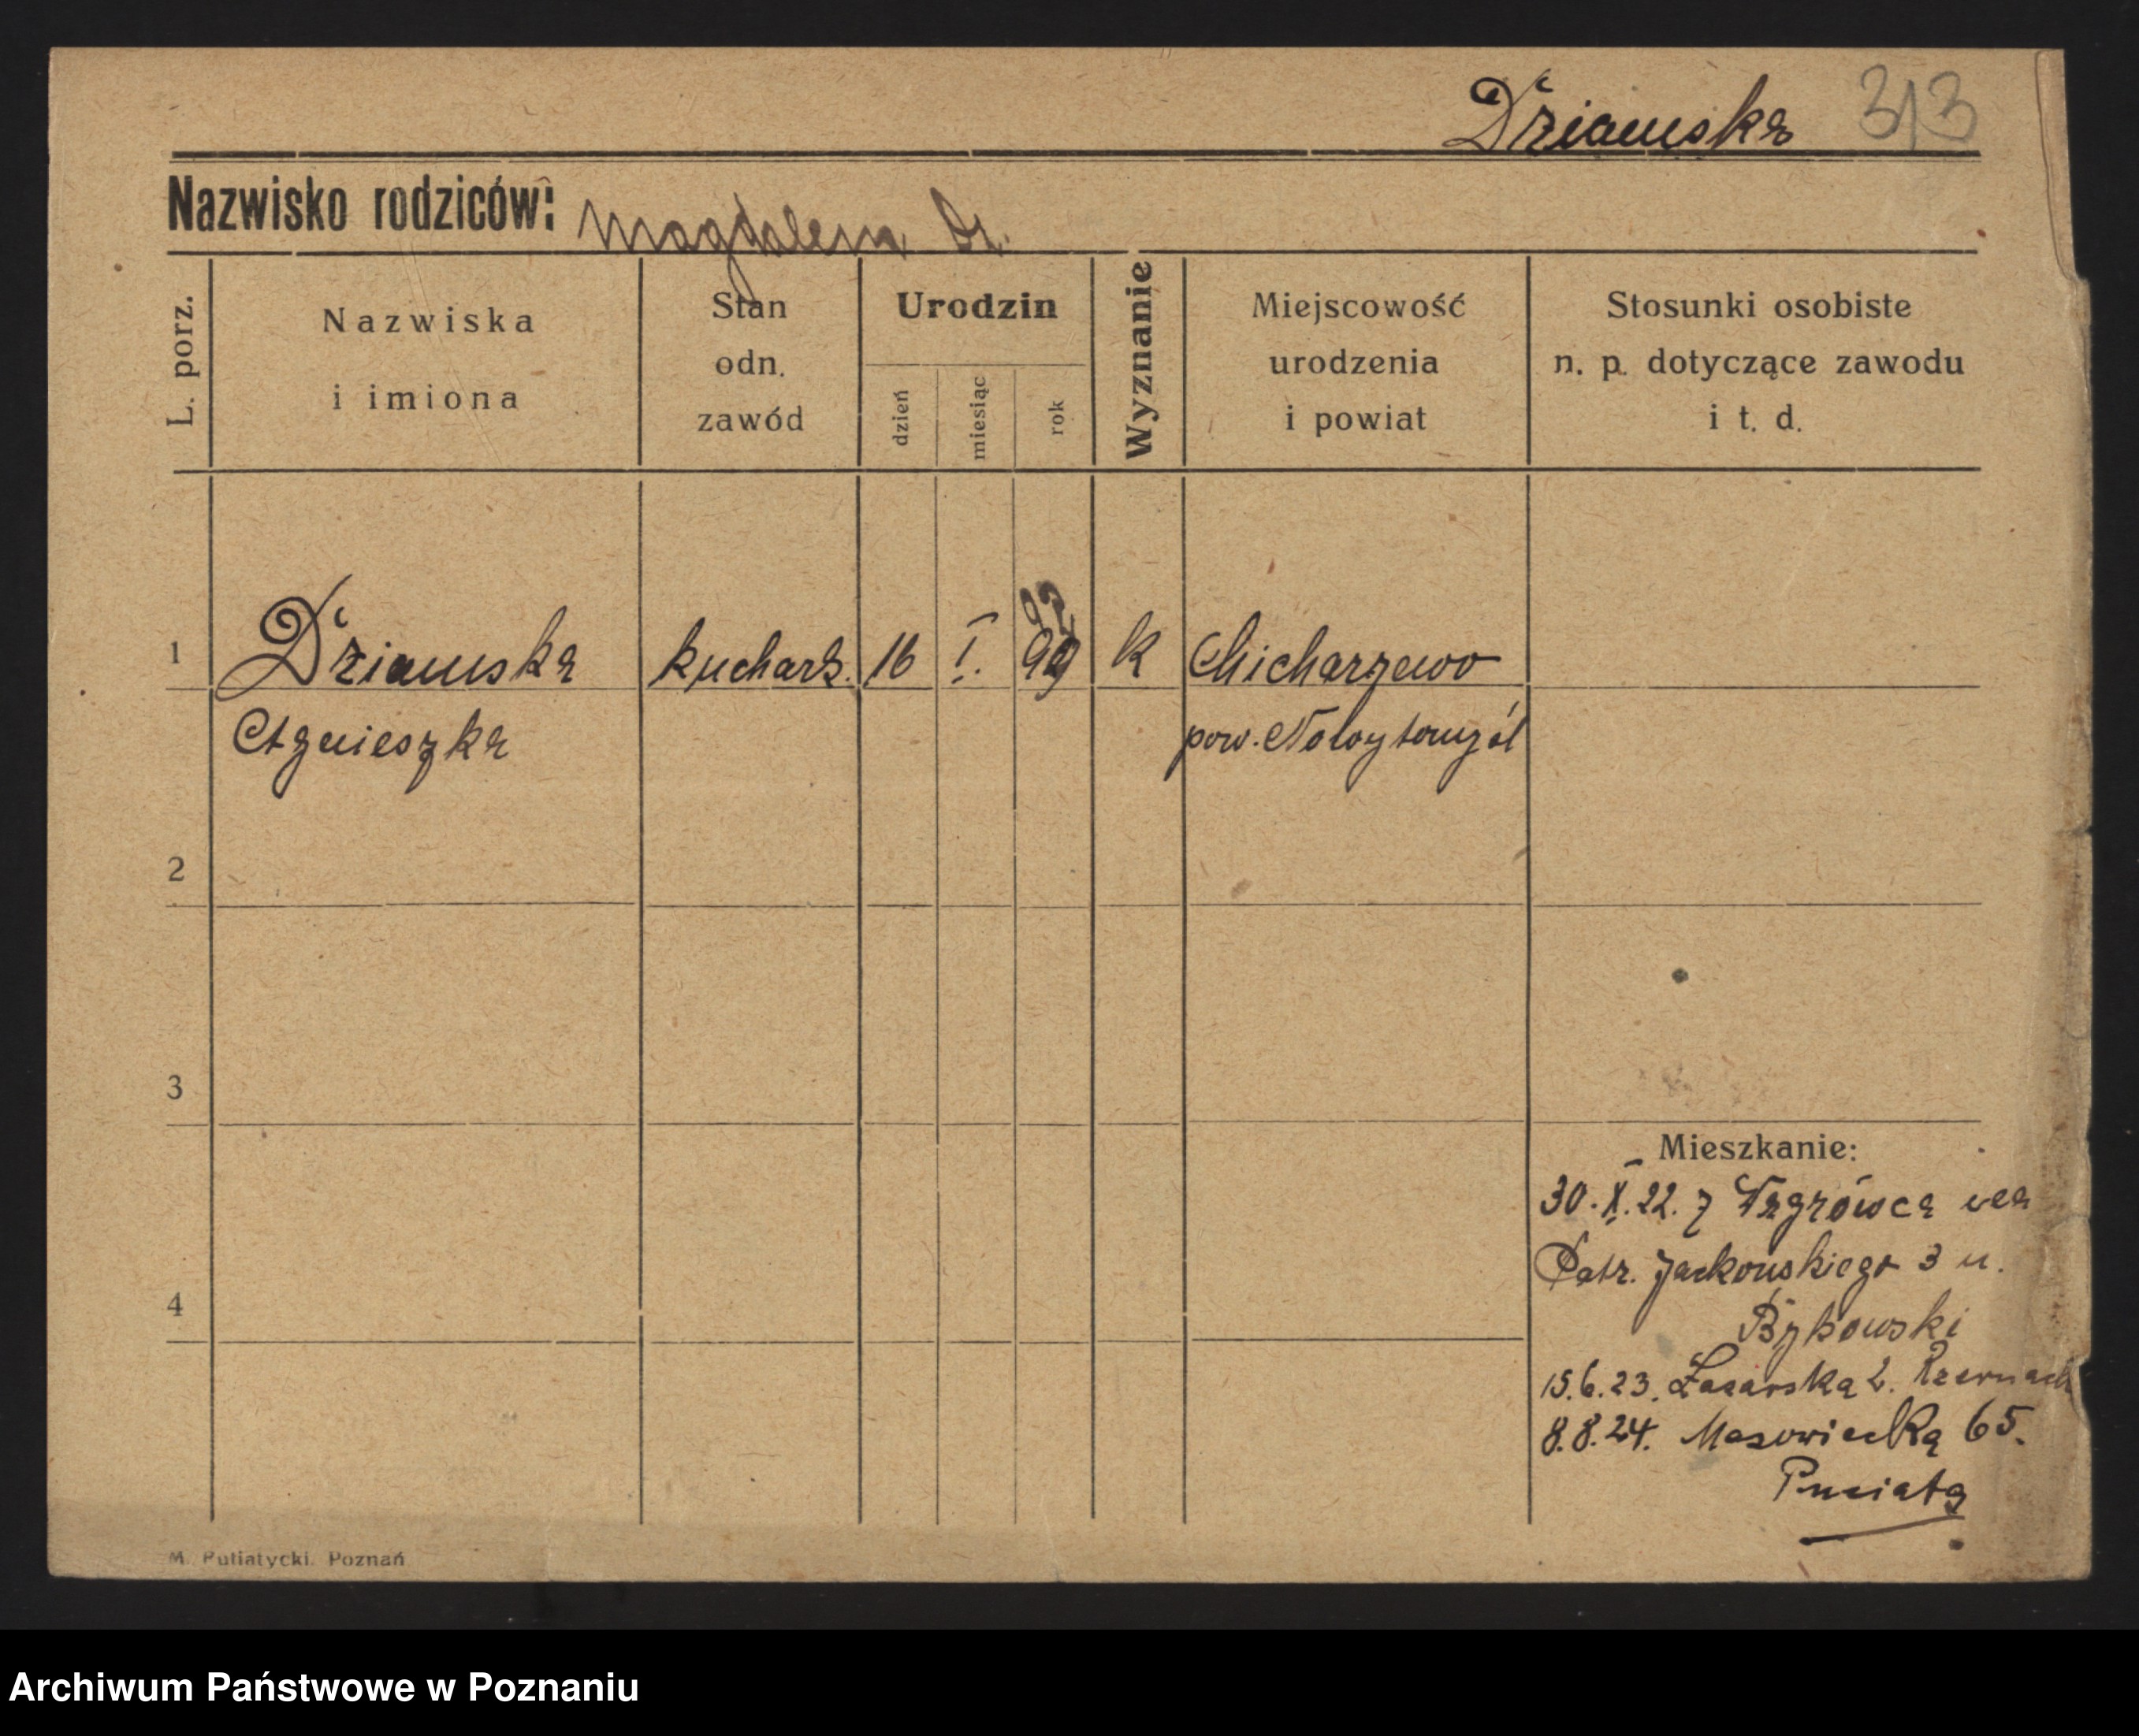 Dziamska 313
Nazwisko rodziców: Magdalena Dz.
L. porz.
Nazwiska
i imiona
Stan
odn.
zawód
Urodzin
dzień
miesiąc
rok
Wyznanie
Miejscowość
urodzenia
i powiat
Stosunki osobiste
n. p. dotyczące zawodu
i t. d.
1 Dziamska kuchark. 16 I. 92 K Michorzewo
Agnieszka pow. Nowytomyśl
2
3
4
Mieszkanie:
30.X.22. z Wągrówca na
Patr. Jackowskiego 3 u.
Bykowski
15.6.23. Łazarska 2.
8.8.24. Mazowiecką 65.
M. Putiatycki. Poznań
Archiwum Państwowe w Poznaniu